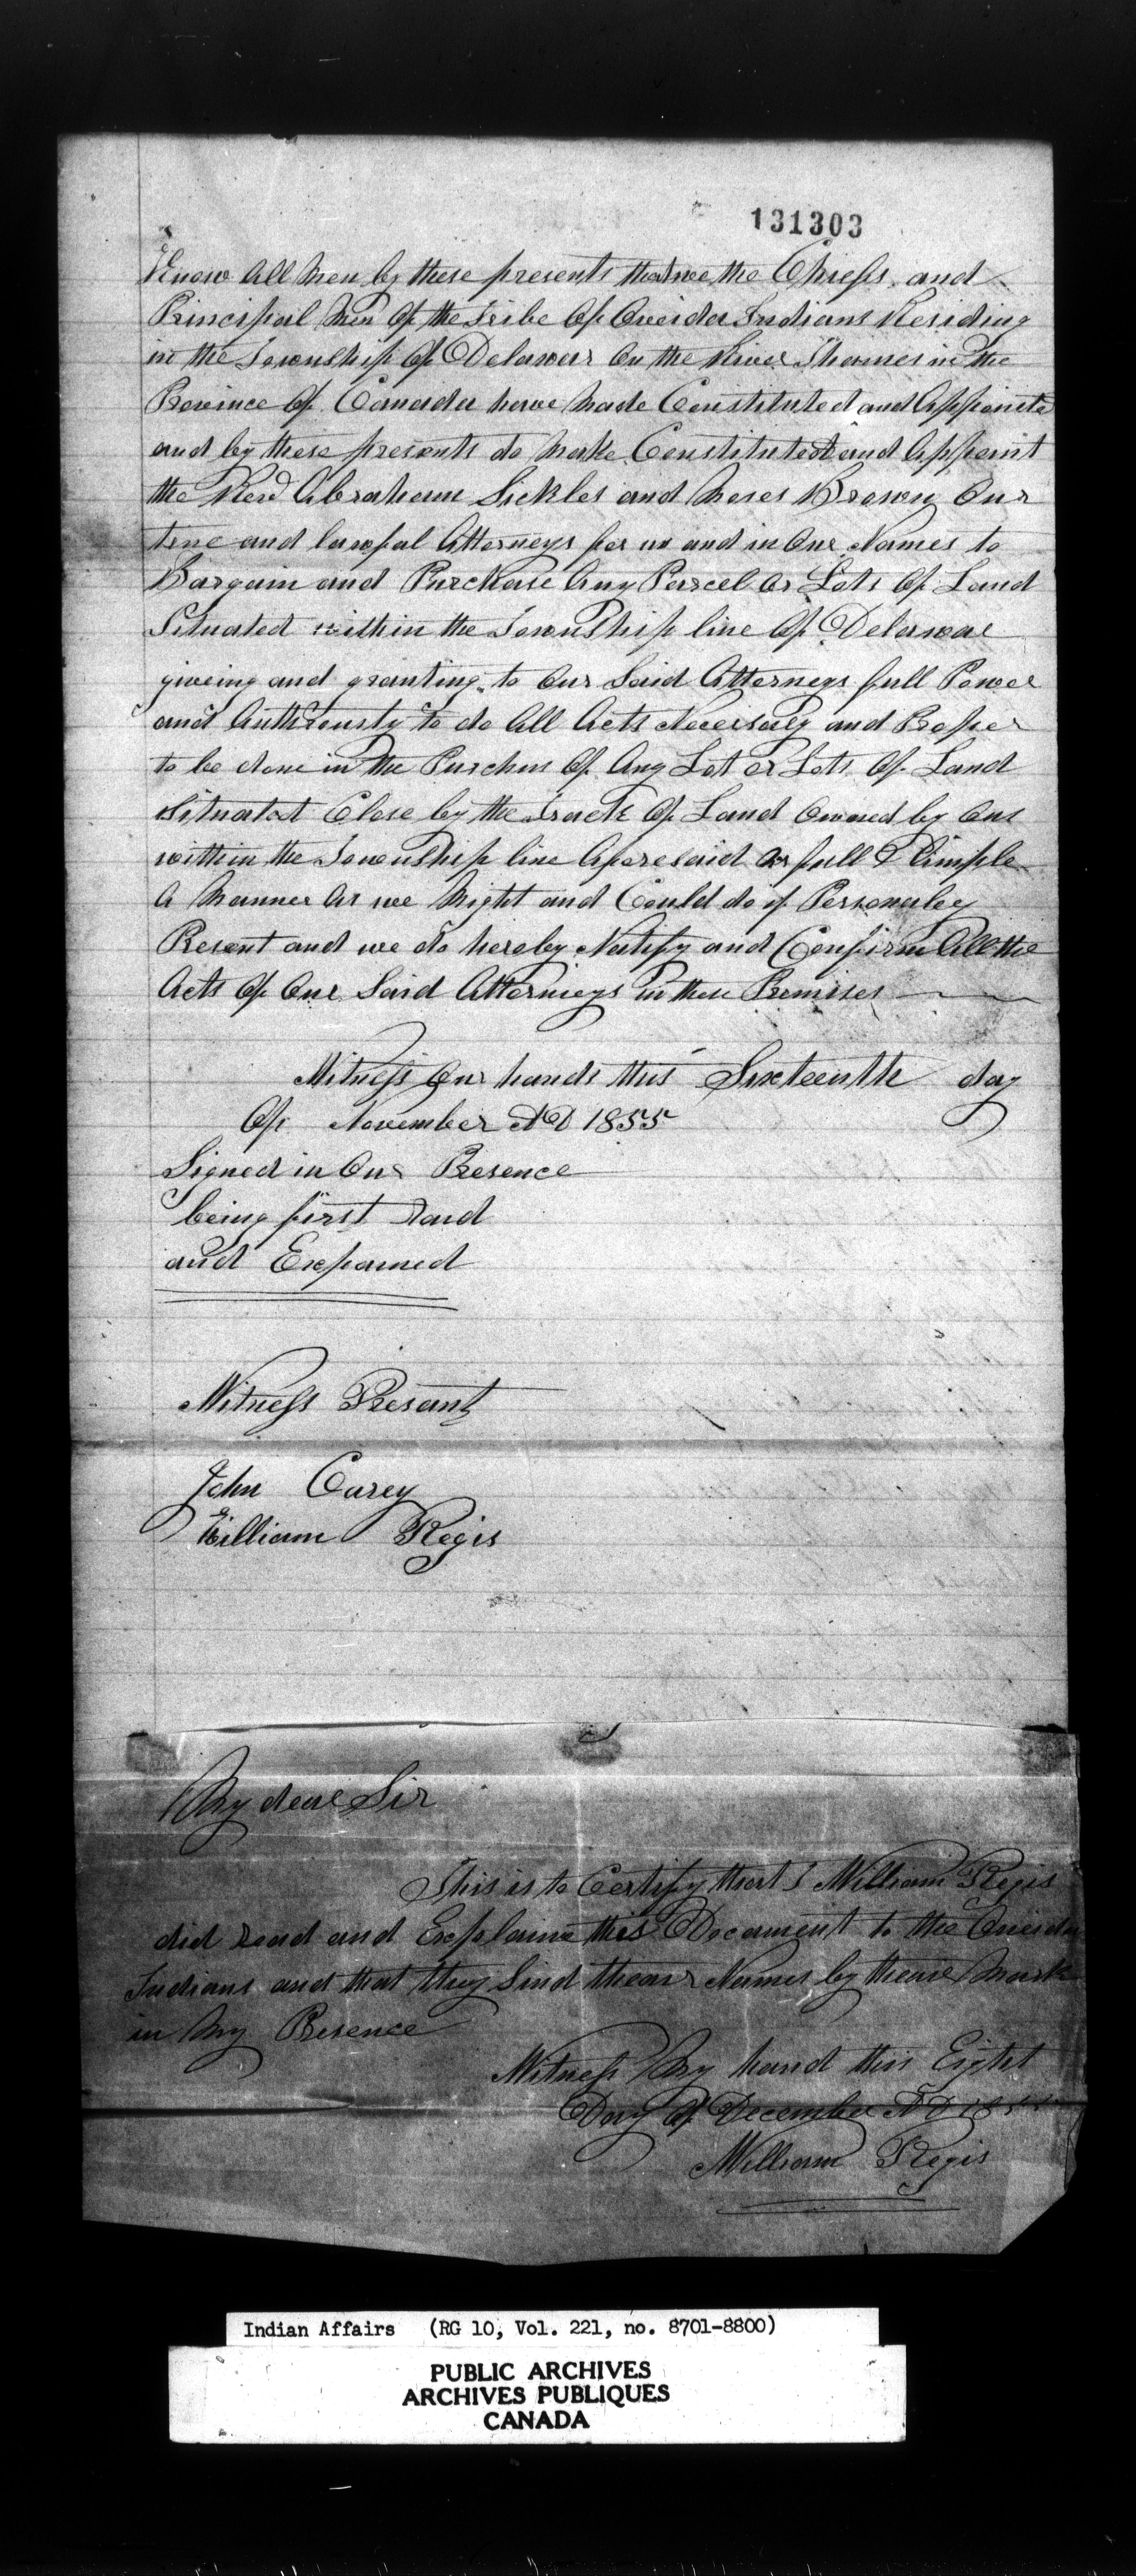 131303
Know All Men by these presents that we the Chiefs and
Principal Men Of the Tribe Of Oneida Indians Residing
in the Township Of Delawar On the River Thames in the
Province Of Canada have Made Constituted and Appointed
and by these presents do Make Constituted and Appoint
the Revd Abraham Sickles and Moses Brown Our
true and lawful Attorneys for us and in Our Names to
Bargain and Purchase Any Parcel Or Lots Of Land
Situated within the Township line Of Delawar
giveing and granting to Our Said Attorneys full Power
and to do All Acts Necessary and Proper
to be done in the Purchus Of Any Lot or Lots Of Land
Situatat Close by the Tract Of Land Owned by Ous
within the Township line Aforesaid As full & Ample
A Manner As we Might and Could do if Personaley
Present and we do hereby Ratify and Confirm All the
Acts Of Our Said Attorneys in these Premises
Witness Our hands this Sixteenth day
Of November AD 1855
Signed in Our Presence
being first Read
and Expained
Witness Presant
John Carey
William Regis
My deare Sir
This is to Certify that I William Regis
did Read and Explaine this Document to the Oneida
Indians and that they Sind theare Names by theare Mark
in My Presence
Witness My hand this Eight
Day Of December AD 1855
William Regis
Indian Affairs (RG 10, Vol. 221, no. 8701-8800)
PUBLIC ARCHIVES
ARCHIVES PUBLIQUES
CANADA